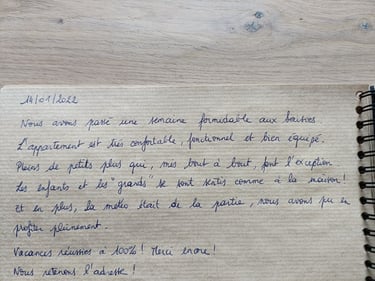 14/01/2022
Nous avons passé une semaine formidable aux
L'appartement est très confortable, fonctionnel et bien équipé.
Pleins de petits plus qui, mis bout à bout, font l'exception.
Les enfants et les "grands" se sont sentis comme à la maison!
Et en plus, la météo était de la partie, nous avons pu en
profiter pleinement.
Vacances réussies à 100%! Merci encore!
Nous retenons l'adresse!